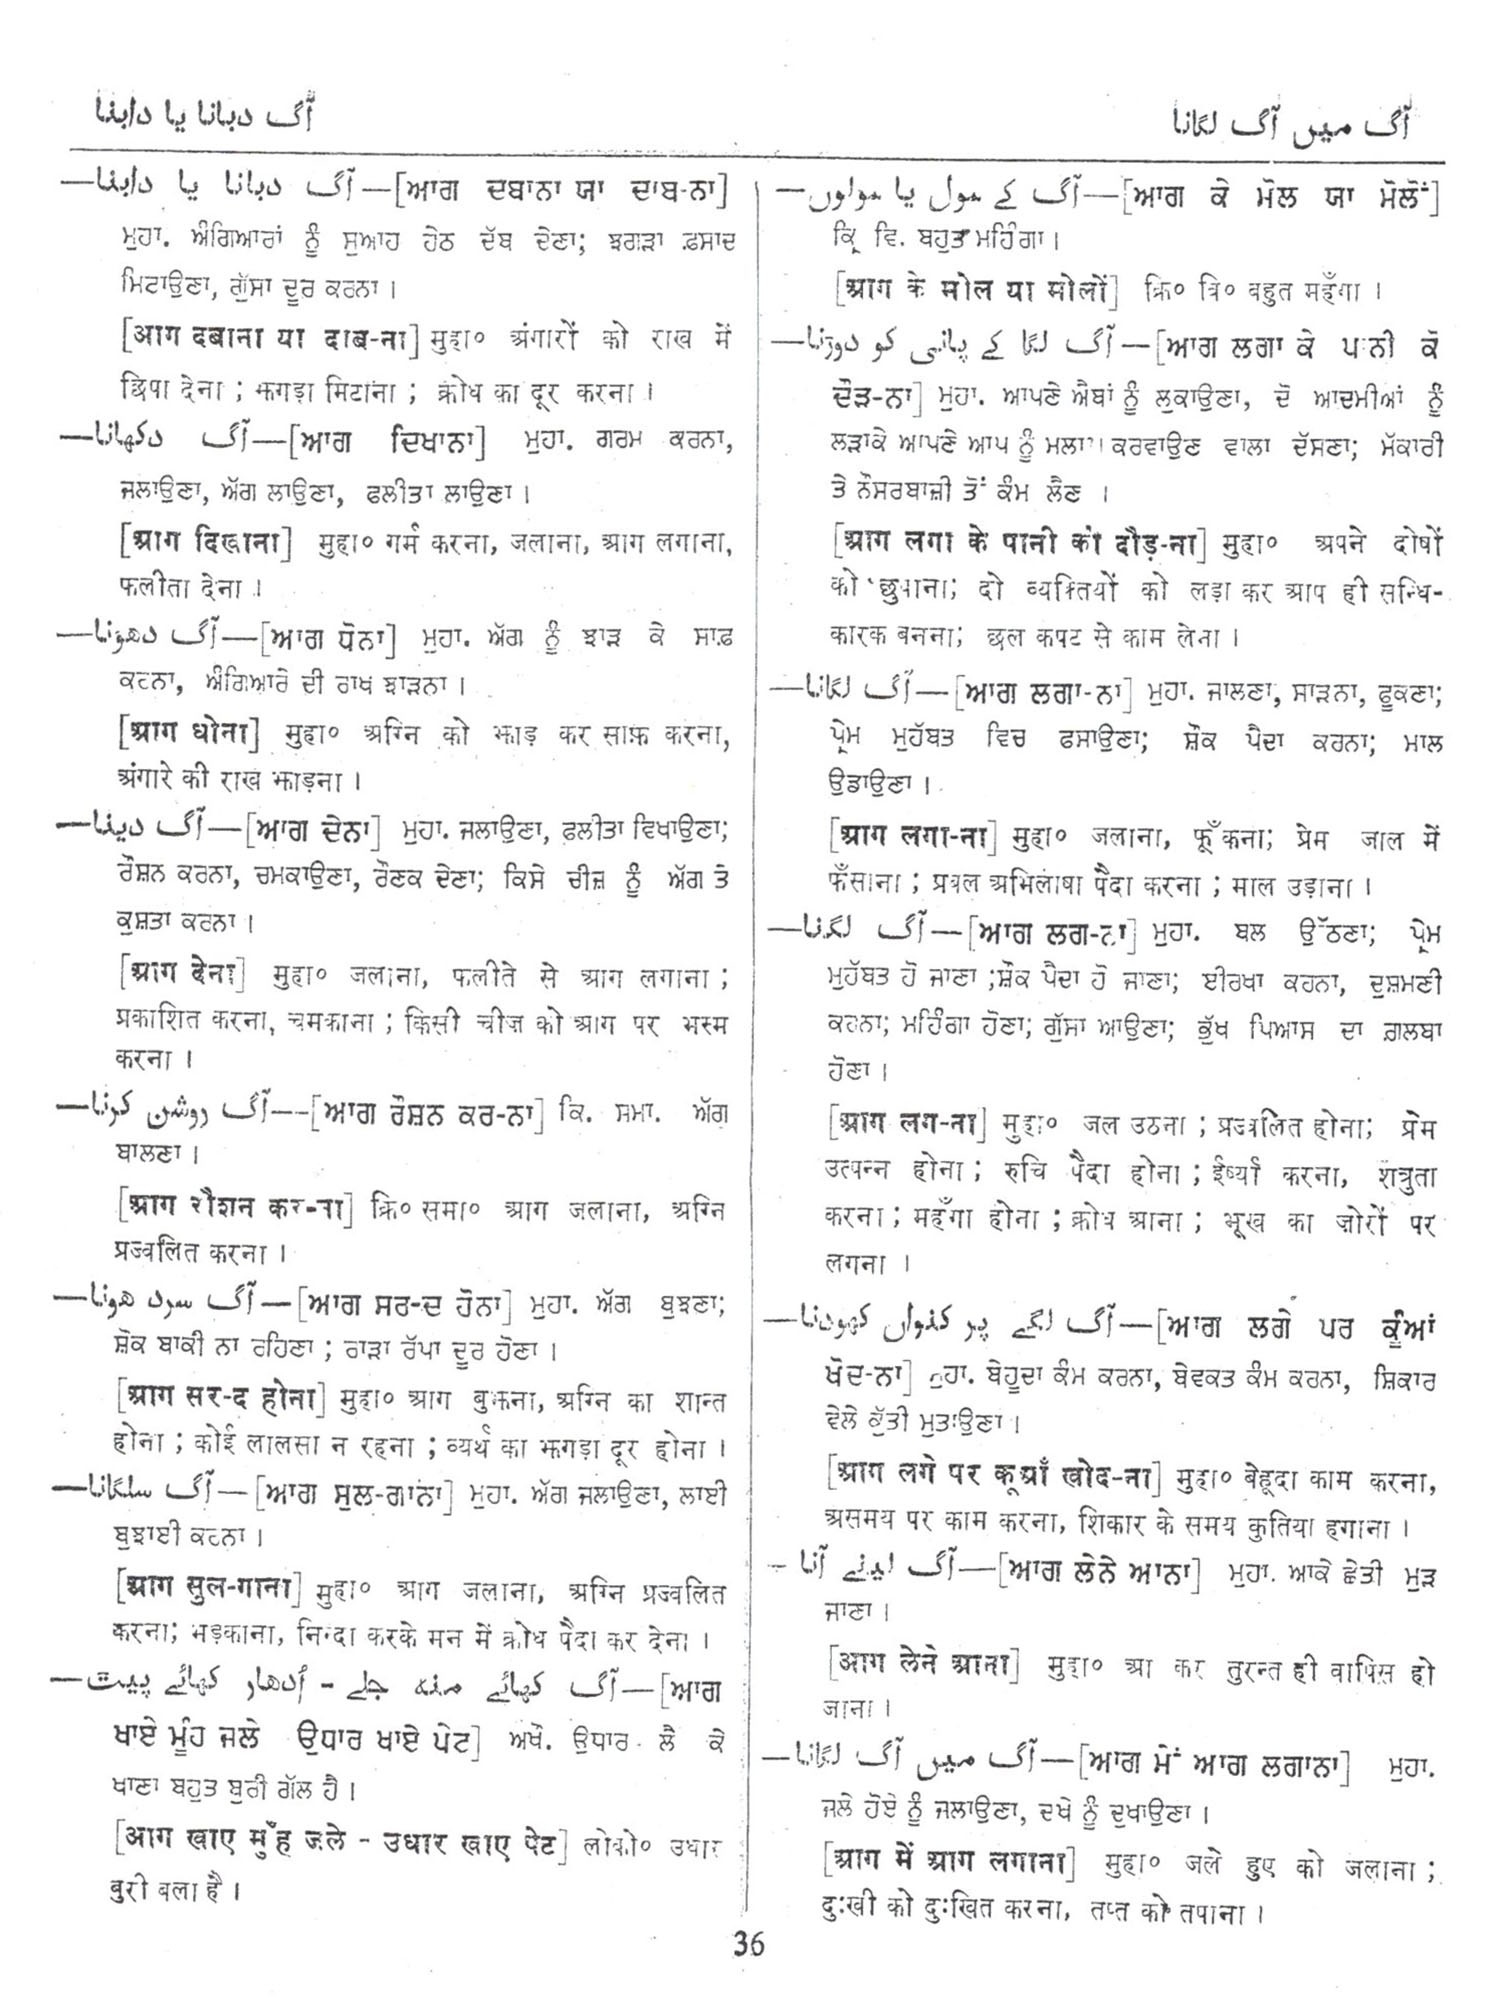 آگ دبانا یا دابنا
آگ میں آگ لگانا
آگ دبانا یا دابنا—[ਆਗ ਦਬਾਨਾ ਯਾ ਦਾਬ-ਨਾ]
ਮੁਹਾ. ਅੰਗਿਆਰਾਂ ਨੂੰ ਸੁਆਹ ਹੇਠ ਦੱਬ ਦੇਣਾ; ਝਗੜਾ ਫ਼ਸਾਦ
ਮਿਟਾਉਣਾ, ਗੁੱਸਾ ਦੂਰ ਕਰਨਾ।
[आग दबाना या दाब-ना] मुहा० अंगारों को राख में
छिपा देना ; झगड़ा मिटाना ; क्रोध का दूर करना ।
آگ دکھانا—[ਆਗ ਦਿਖਾਨਾ] ਮੁਹਾ. ਗਰਮ ਕਰਨਾ,
ਜਲਾਉਣਾ, ਅੱਗ ਲਾਉਣਾ, ਫਲੀਤਾ ਲਾਉਣਾ।
[आग दिखाना] मुहा० गर्म करना, जलाना, आग लगाना,
फलीता देना ।
آگ دھونا—[ਆਗ ਧੋਨਾ] ਮੁਹਾ. ਅੱਗ ਨੂੰ ਝਾੜ ਕੇ ਸਾਫ਼
ਕਰਨਾ, ਅੰਗਿਆਰੇ ਦੀ ਰਾਖ ਝਾੜਨਾ।
[आग धोना] मुहा० अग्नि को झाड़ कर साफ़ करना,
अंगारे की राख झाड़ना ।
آگ دینا—[ਆਗ ਦੇਨਾ] ਮੁਹਾ. ਜਲਾਉਣਾ, ਫ਼ਲੀਤਾ ਵਿਖਾਉਣਾ;
ਰੌਸ਼ਨ ਕਰਨਾ, ਚਮਕਾਉਣਾ, ਰੌਣਕ ਦੇਣਾ; ਕਿਸੇ ਚੀਜ਼ ਨੂੰ ਅੱਗ ਤੇ
ਕੁਸ਼ਤਾ ਕਰਨਾ।
[आग देना] मुहा० जलाना, फलीते से आग लगाना ;
प्रकाशित करना, चमकाना ; किसी चीज़ को आग पर भस्म
करना ।
آگ روشن کرنا—[ਆਗ ਰੌਸ਼ਨ ਕਰ-ਨਾ] ਕਿ. ਸਮਾ. ਅੱਗ
ਬਾਲਣਾ।
[आग रौशन कर-ना] क्रि० समा० आग जलाना, अग्नि
प्रज्वलित करना ।
آگ سرد ھونا—[ਆਗ ਸਰ-ਦ ਹੋਨਾ] ਮੁਹਾ. ਅੱਗ ਬੁਝਣਾ;
ਸ਼ੋਕ ਬਾਕੀ ਨਾ ਰਹਿਣਾ; ਰਾੜਾ ਰੱਪਾ ਦੂਰ ਹੋਣਾ।
[आग सर-द होना] मुहा० आग बुझना, अग्नि का शान्त
होना ; कोई लालसा न रहना ; व्यर्थ का झगड़ा दूर होना ।
آگ سلگانا—[ਆਗ ਸੁਲ-ਗਾਨਾ] ਮੁਹਾ. ਅੱਗ ਜਲਾਉਣਾ, ਲਾਈ
ਬੁਝਾਈ ਕਰਨਾ।
[आग सुल-गाना] मुहा० आग जलाना, अग्नि प्रज्वलित
करना; भड़काना, निन्दा करके मन में क्रोध पैदा कर देना ।
آگ کھائے منہ جلے - اُدھار کھائے پیٹ—[ਆਗ
ਖਾਏ ਮੂੰਹ ਜਲੇ ਉਧਾਰ ਖਾਏ ਪੇਟ] ਅਖੌ. ਉਧਾਰ ਲੈ ਕੇ
ਖਾਣਾ ਬਹੁਤ ਬੁਰੀ ਗੱਲ ਹੈ।
[आग खाए मुँह जले - उधार खाए पेट] लोको० उधार
बुरी बला है ।
آگ کے مول یا مولوں—[ਆਗ ਕੇ ਮੋਲ ਯਾ ਮੋਲੋਂ]
ਕ੍ਰਿ ਵਿ. ਬਹੁਤ ਮਹਿੰਗਾ।
[आग के मोल या मोलों] क्रि० वि० बहुत महँगा ।
آگ لگا کے پانی کو دوڑنا—[ਆਗ ਲਗਾ ਕੇ ਪਾਨੀ ਕੋ
ਦੌੜ-ਨਾ] ਮੁਹਾ. ਆਪਣੇ ਐਬਾਂ ਨੂੰ ਲੁਕਾਉਣਾ, ਦੋ ਆਦਮੀਆਂ ਨੂੰ
ਲੜਾਕੇ ਆਪਣੇ ਆਪ ਨੂੰ ਕਰਵਾਉਣ ਵਾਲਾ ਦੱਸਣਾ; ਮੱਕਾਰੀ
ਤੇ ਨੌਸਰਬਾਜ਼ੀ ਤੋਂ ਕੰਮ ਲੈਣ ।
[आग लगा के पानी को दौड़-ना] मुहा० अपने दोषों
को छुपाना; दो व्यक्तियों को लड़ा कर आप ही सन्धि-
कारक बनना; छल कपट से काम लेना ।
آگ لگانا—[ਆਗ ਲਗਾ-ਨਾ] ਮੁਹਾ. ਜਾਲਣਾ, ਸਾੜਨਾ, ਫੂਕਣਾ;
ਪ੍ਰੇਮ ਮੁਹੱਬਤ ਵਿਚ ਫਸਾਉਣਾ; ਸ਼ੌਕ ਪੈਦਾ ਕਰਨਾ; ਮਾਲ
ਉਡਾਉਣਾ।
[आग लगा-ना] मुहा० जलाना, फूँकना; प्रेम जाल में
फँसाना ; प्रबल अभिलाषा पैदा करना ; माल उड़ाना ।
آگ لگنا—[ਆਗ ਲਗ-ਨਾ] ਮੁਹਾ. ਬਲ ਉੱਠਣਾ; ਪ੍ਰੇਮ
ਮੁਹੱਬਤ ਹੋ ਜਾਣਾ ;ਸ਼ੌਕ ਪੈਦਾ ਹੋ ਜਾਣਾ; ਈਰਖਾ ਕਰਨਾ, ਦੁਸ਼ਮਣੀ
ਕਰਨਾ; ਮਹਿੰਗਾ ਹੋਣਾ; ਗੁੱਸਾ ਆਉਣਾ; ਭੁੱਖ ਪਿਆਸ ਦਾ ਗ਼ਲਬਾ
ਹੋਣਾ।
[आग लग-ना] मुहा० जल उठना ; प्रज्वलित होना; प्रेम
उत्पन्न होना ; रुचि पैदा होना ; ईर्ष्या करना, शत्रुता
करना ; महँगा होना ; क्रोध आना ; भूख का ज़ोरों पर
लगना ।
آگ لگے پر کنواں کھودنا—[ਆਗ ਲਗੇ ਪਰ ਕੂੰਆਂ
ਖੋਦ-ਨਾ] ਮੁਹਾ. ਬੇਹੂਦਾ ਕੰਮ ਕਰਨਾ, ਬੇਵਕਤ ਕੰਮ ਕਰਨਾ, ਸ਼ਿਕਾਰ
ਵੇਲੇ ਕੁੱਤੀ ਮੁਤਾਉਣਾ।
[आग लगे पर कूआँ खोद-ना] मुहा० बेहूदा काम करना,
असमय पर काम करना, शिकार के समय कुतिया हगाना ।
آگ لینے آنا—[ਆਗ ਲੇਨੇ ਆਨਾ] ਮੁਹਾ. ਆਕੇ ਛੇਤੀ ਮੁੜ
ਜਾਣਾ।
[आग लेने आना] मुहा० आ कर तुरन्त ही वापिस हो
जाना ।
آگ میں آگ لگانا—[ਆਗ ਮੇਂ ਆਗ ਲਗਾਨਾ] ਮੁਹਾ.
ਜਲੇ ਹੋਏ ਨੂੰ ਜਲਾਉਣਾ, ਦਖੇ ਨੂੰ ਦੁਖਾਉਣਾ।
[आग में आग लगाना] मुहा० जले हुए को जलाना ;
दुःखी को दुःखित करना, तप्त को तपाना ।
36